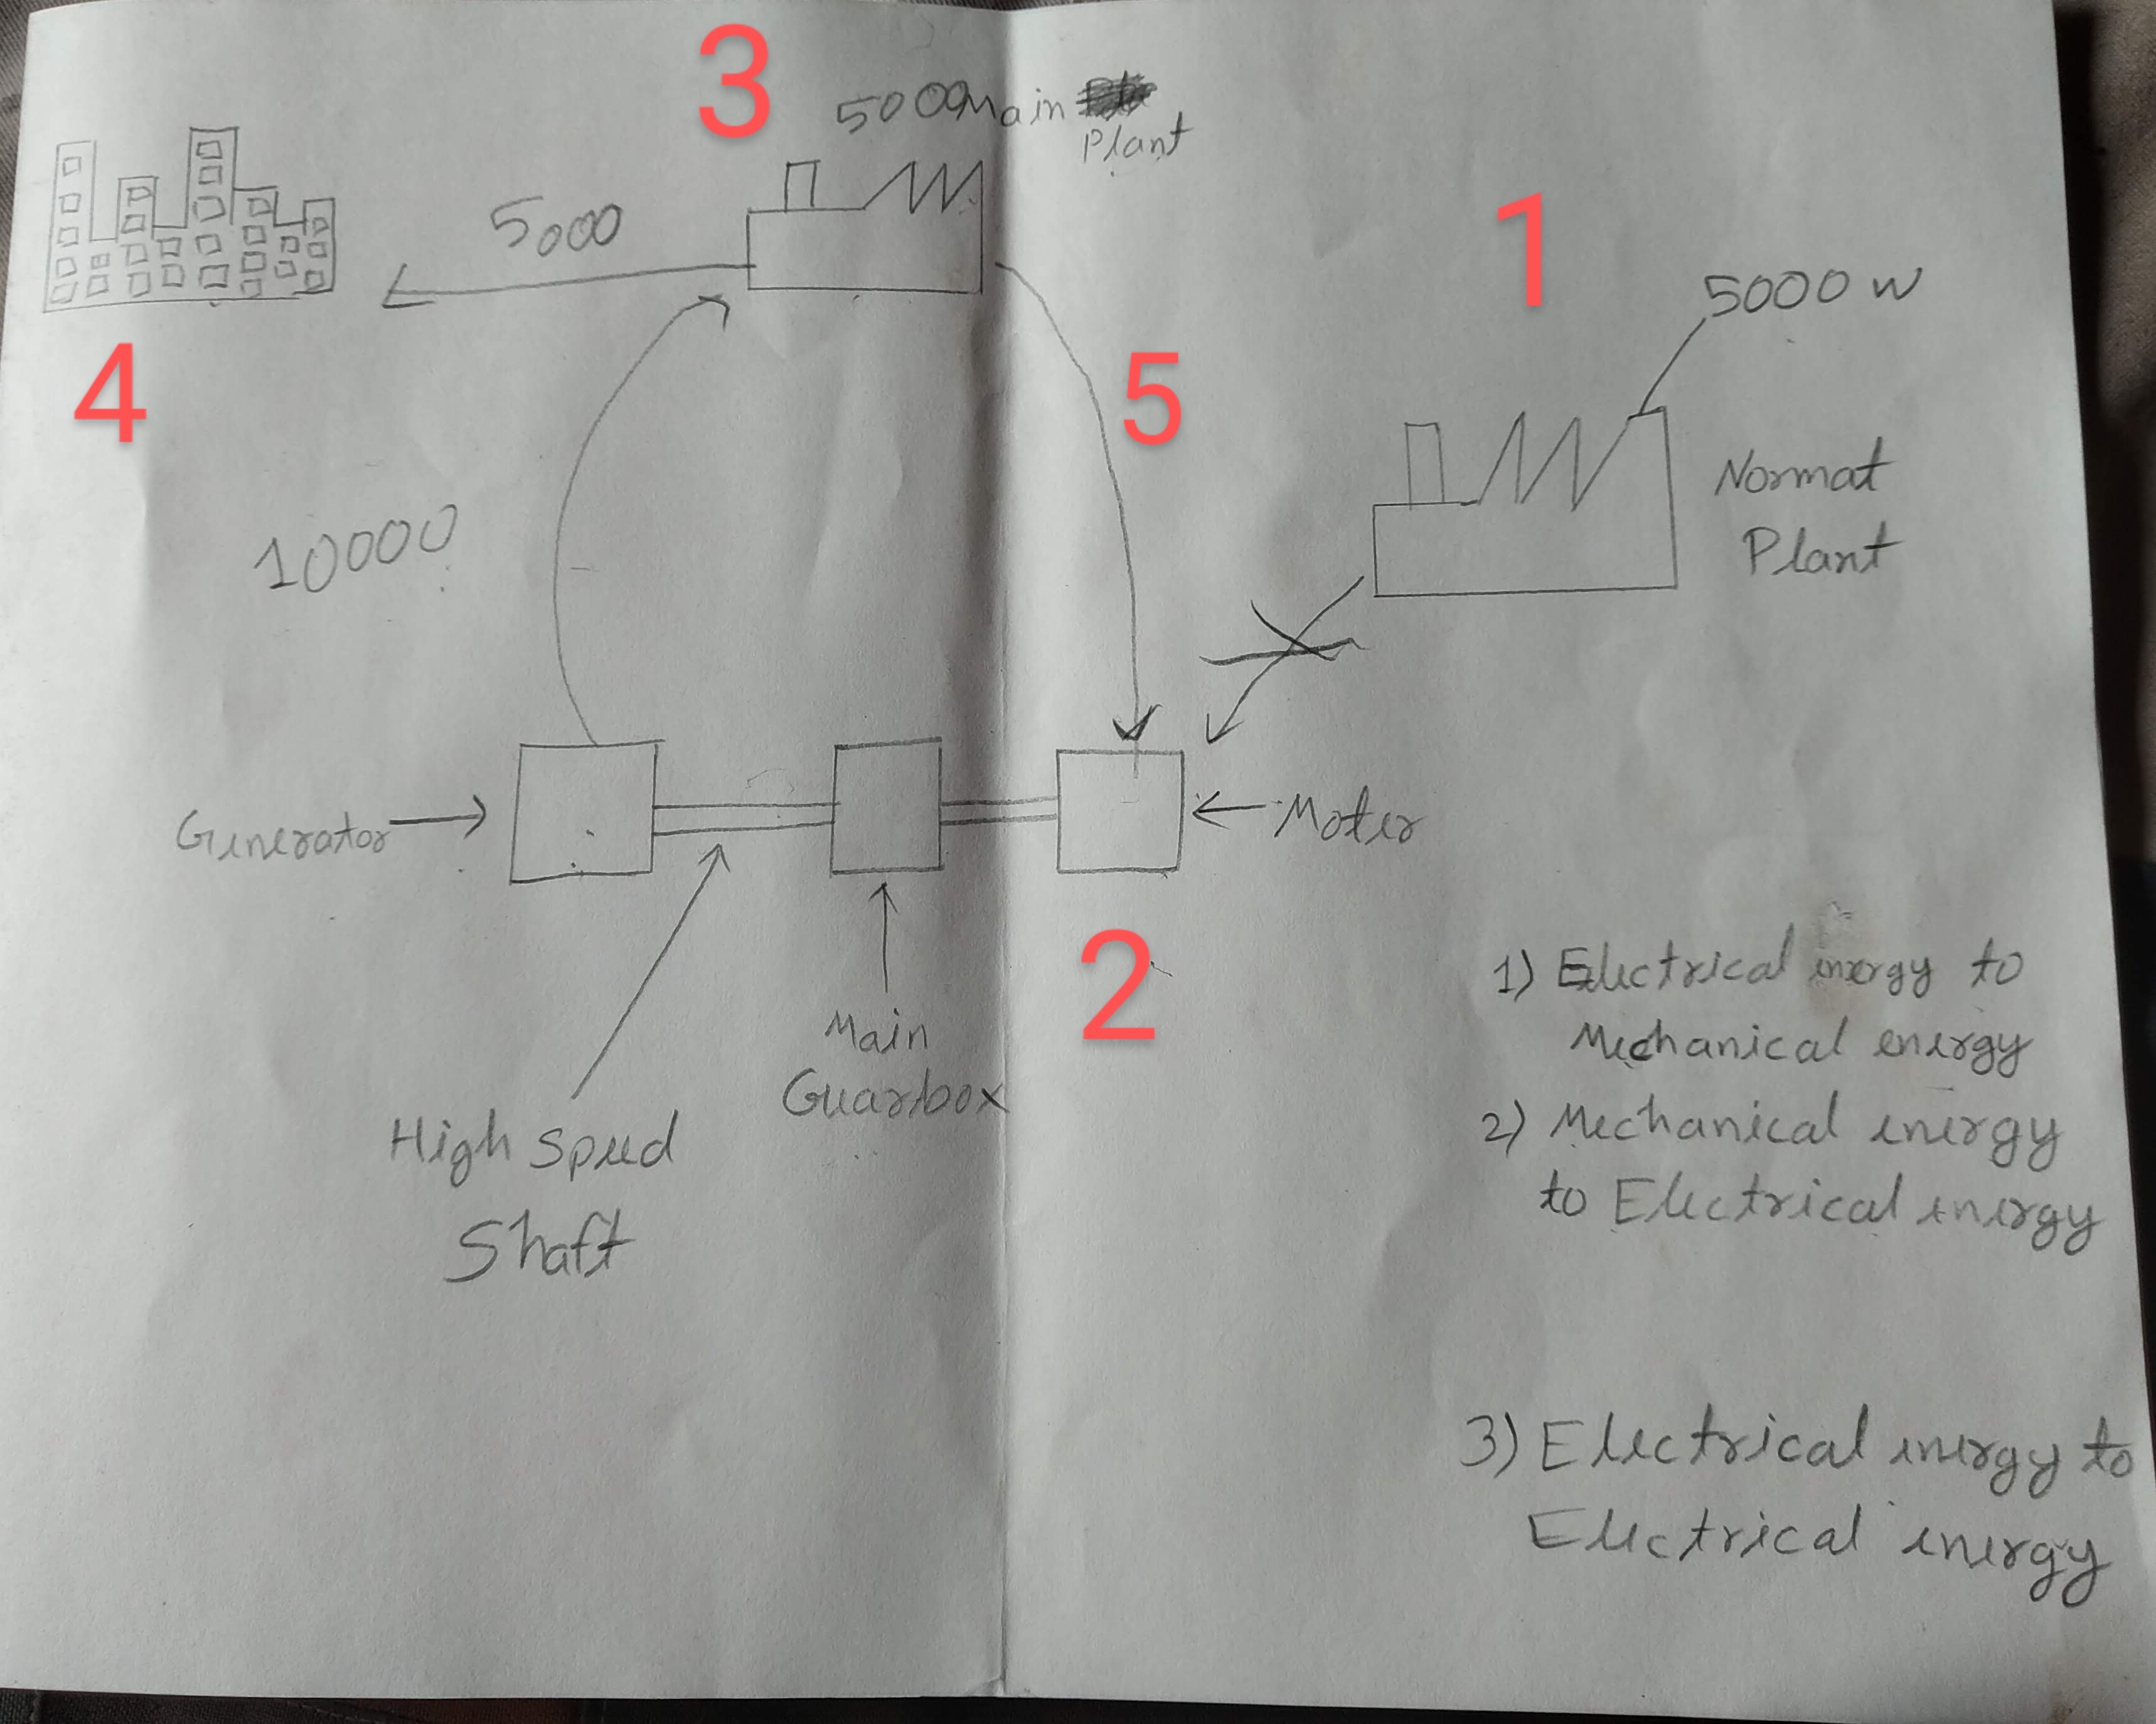 3
5000 Main
Plant
5000
1
5000 W
4
5
Normal
Plant
10000
Generator
Moter
2
Main
Gearbox
High Speed
Shaft
1) Electrical energy to
Mechanical energy
2) Mechanical energy
to Electrical energy
3) Electrical energy to
Electrical energy